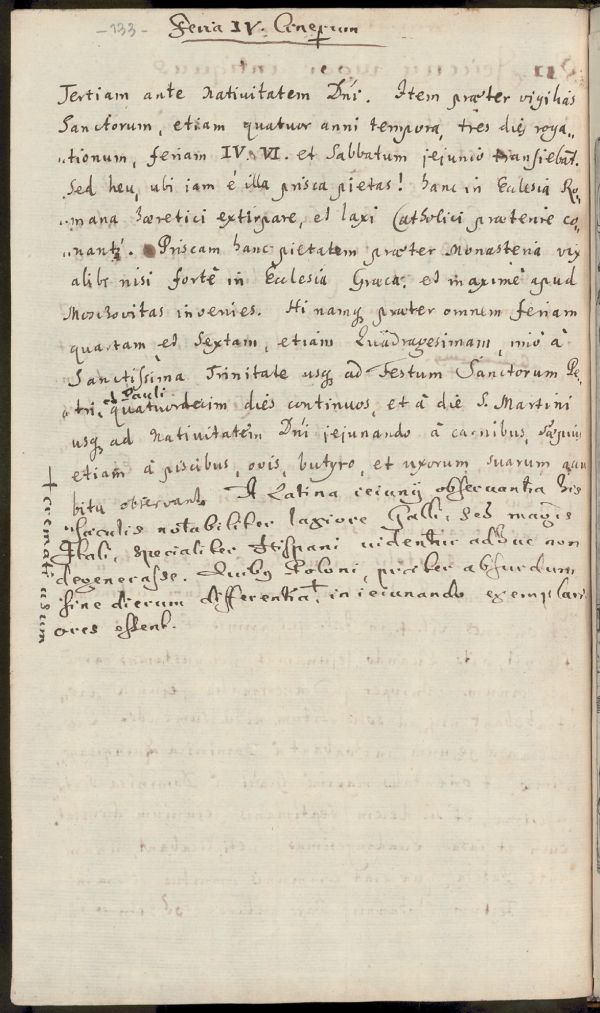 - 133 -
Feria IV. Cinerum
Tertiam ante Nativitatem Dńi. Item præter vigilias
Sanctorum, etiam quatuor anni tempora, tres dies roga„
„tionum, feriam IV. VI. et Sabbatum jejunio transiebāt.
Sed heu, ubi iam é illa prisca pietas! hanc in Eclesia Ro„
„mana hæretici extirpare, et laxi Catholici præterire co„
„nantꝰ. Priscam hanc pietatem præter Monasteria vix
alibi nisi fortè in Eclesia Græca, et maximè apud
Moschovitas invenies. Hi namq; præter omnem feriam
quartam et Sextam, etiam Quadragesimam, imò à
Sanctissima Trinitate usq; ad Festum Sanctorum Pe„
et Pauli
„tri, quatuordecim dies continuos, et à die S. Martini
usq; ad Nativitatem Dńi jejunando à carnibus, sæpius
etiam à piscibus, ovis, butyro, et uxorum suarum
bitu observant. A Latina ieiunij observantia his
sæculis notabiliter laxiore Galli, sed magis
Itali, specialiter Hispani videntur adhuc non
degenerasse. Quibus Poloni, præter absurdum
sine dierum differentia † in ieiunando exemplari
ores essent.
† cremati usum